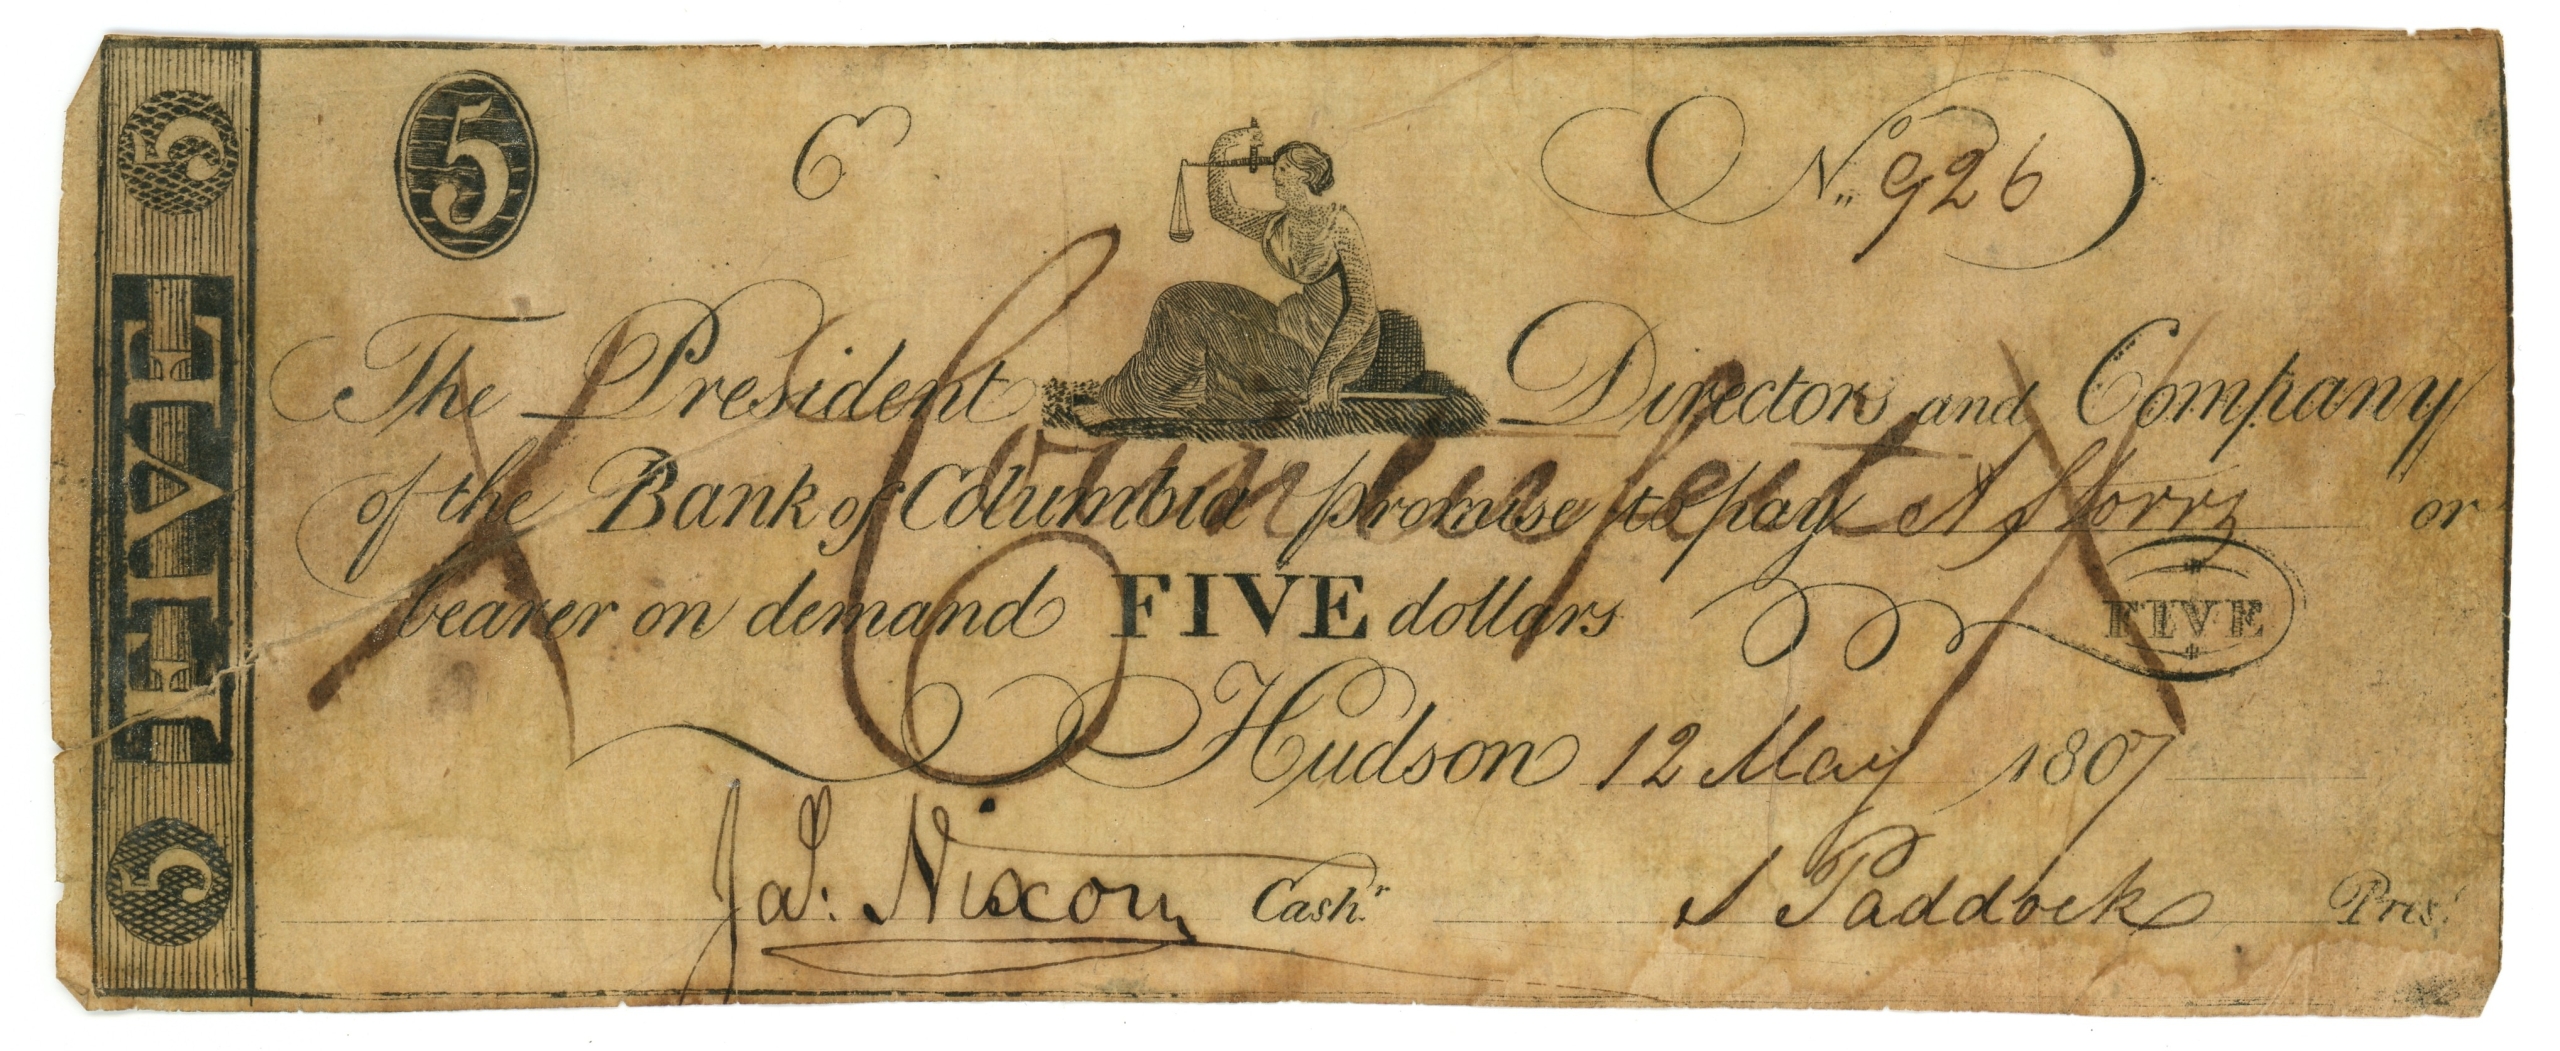 5
5 C No. 926
The President Directors and Company
of the Bank of Columbia promise to pay A Storrs or
bearer on demand FIVE dollars FIVE
Counterfeit
Hudson 12 May 1807
Jas: Nixon Cashr. S Paddock Prest.
FIVE
5